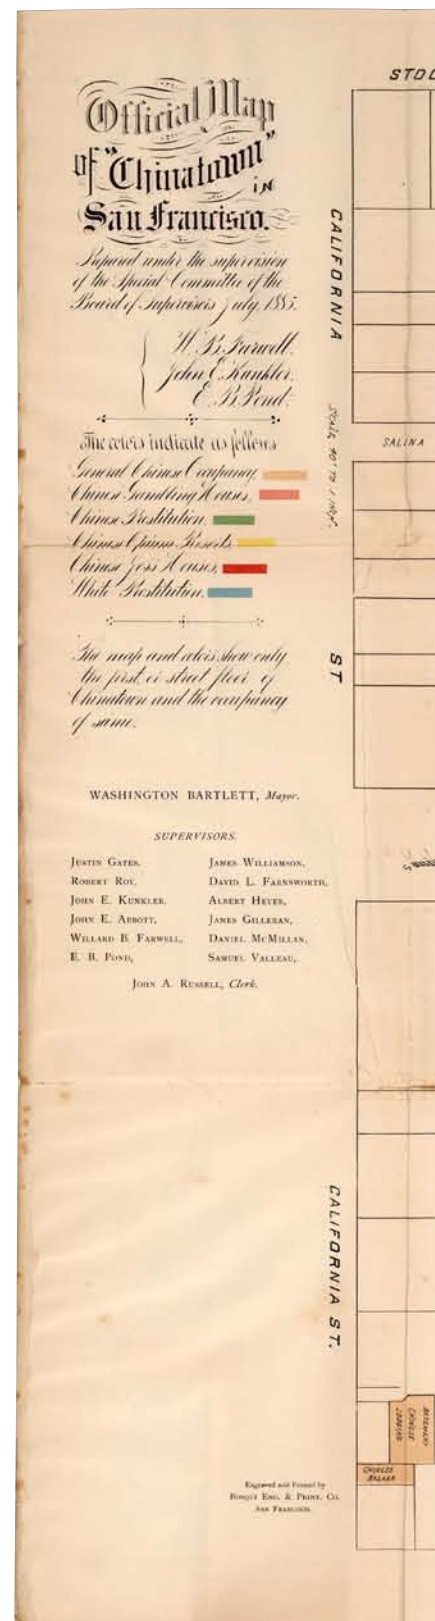 Official Map
of "Chinatown"
in
San Francisco.
Prepared under the supervision
of the Special Committee of the
Board of Supervisors July, 1885.
W. B. Farwell.
John E. Kunkler.
E. B. Pond.
The colors indicate as follows
General Chinese Occupancy,
Chinese Gambling Houses,
Chinese Prostitution,
Chinese Opium Resorts,
Chinese Joss Houses,
White Prostitution,
The map and colors show only
the first, or street floor of
Chinatown and the occupancy
of same.
WASHINGTON BARTLETT, Mayor.
SUPERVISORS.
JUSTIN GATES, JAMES WILLIAMSON,
ROBERT ROY, DAVID L. FARNSWORTH,
JOHN E. KUNKLER, ALBERT HEYER,
JOHN E. ABBOTT, JAMES GILLERAN,
WILLARD B. FARWELL, DANIEL MCMILLAN,
E. B. POND, SAMUEL VALLEAU,
JOHN A. RUSSELL, Clerk.
Engraved and Printed by
BOSQUI ENG. & PRINT. CO.
SAN FRANCISCO.
STOC
CALIFORNIA
SALINA
ST
CALIFORNIA ST.
BASEMENT
CHINESE
LODGING
CHINESE
BAZAAR